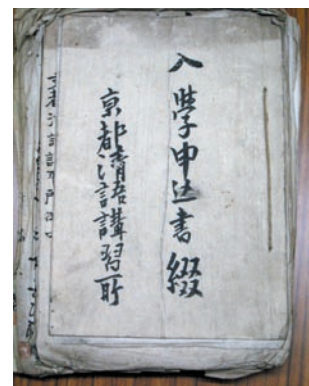 入學申込書綴
京都清語講習所